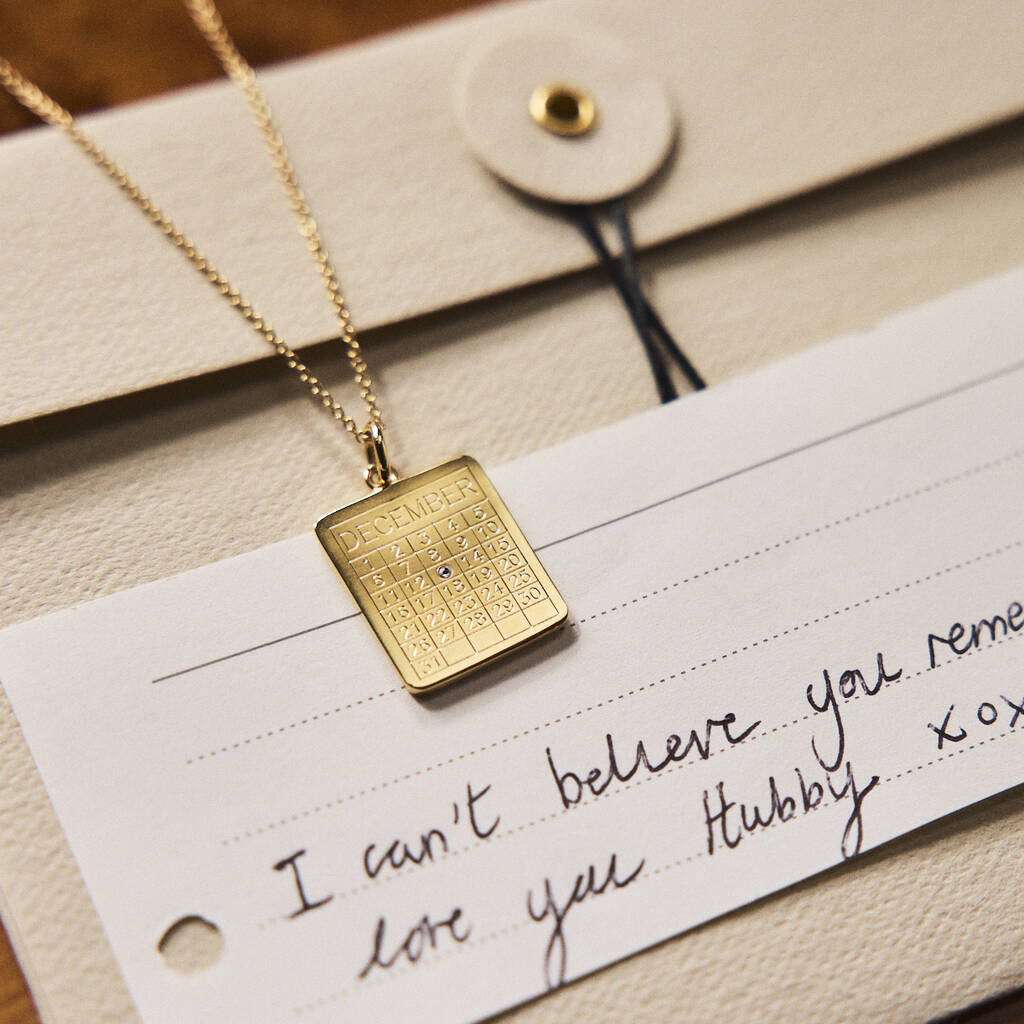 DECEMBER
1 2 3 4 5
6 7 8 9 10
11 12 14 15
16 17 18 19 20
21 22 23 24 25
26 27 28 29 30
31
I can't believe you reme
love you Hubby xox